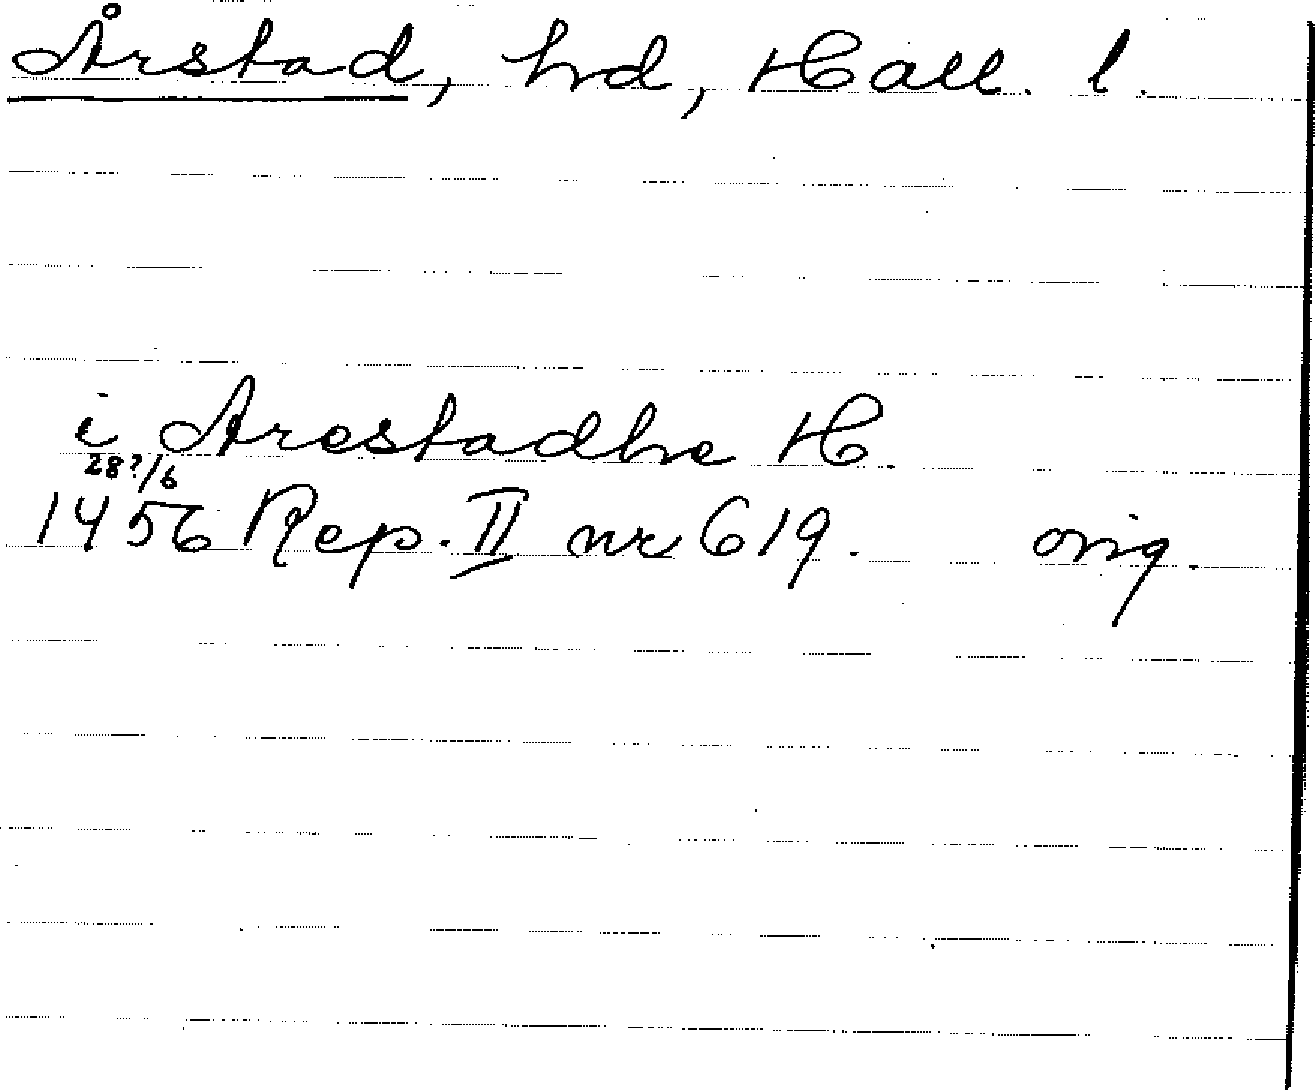 Årstad, hrd, Hall. l.
i Arestadhe H.
28?/6
1456 Rep. II nr 619. orig.